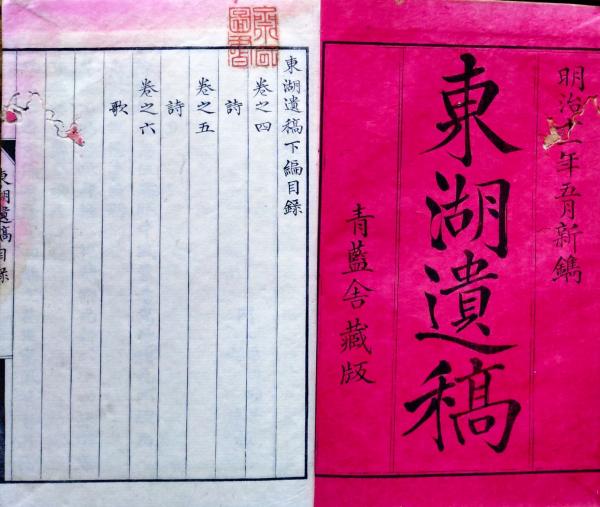 明治十一年五月新鐫
東湖遺稿
青藍舍藏版
東湖遺稿下編目錄
卷之四
詩
卷之五
詩
卷之六
歌
東湖遺稿目錄
圖書